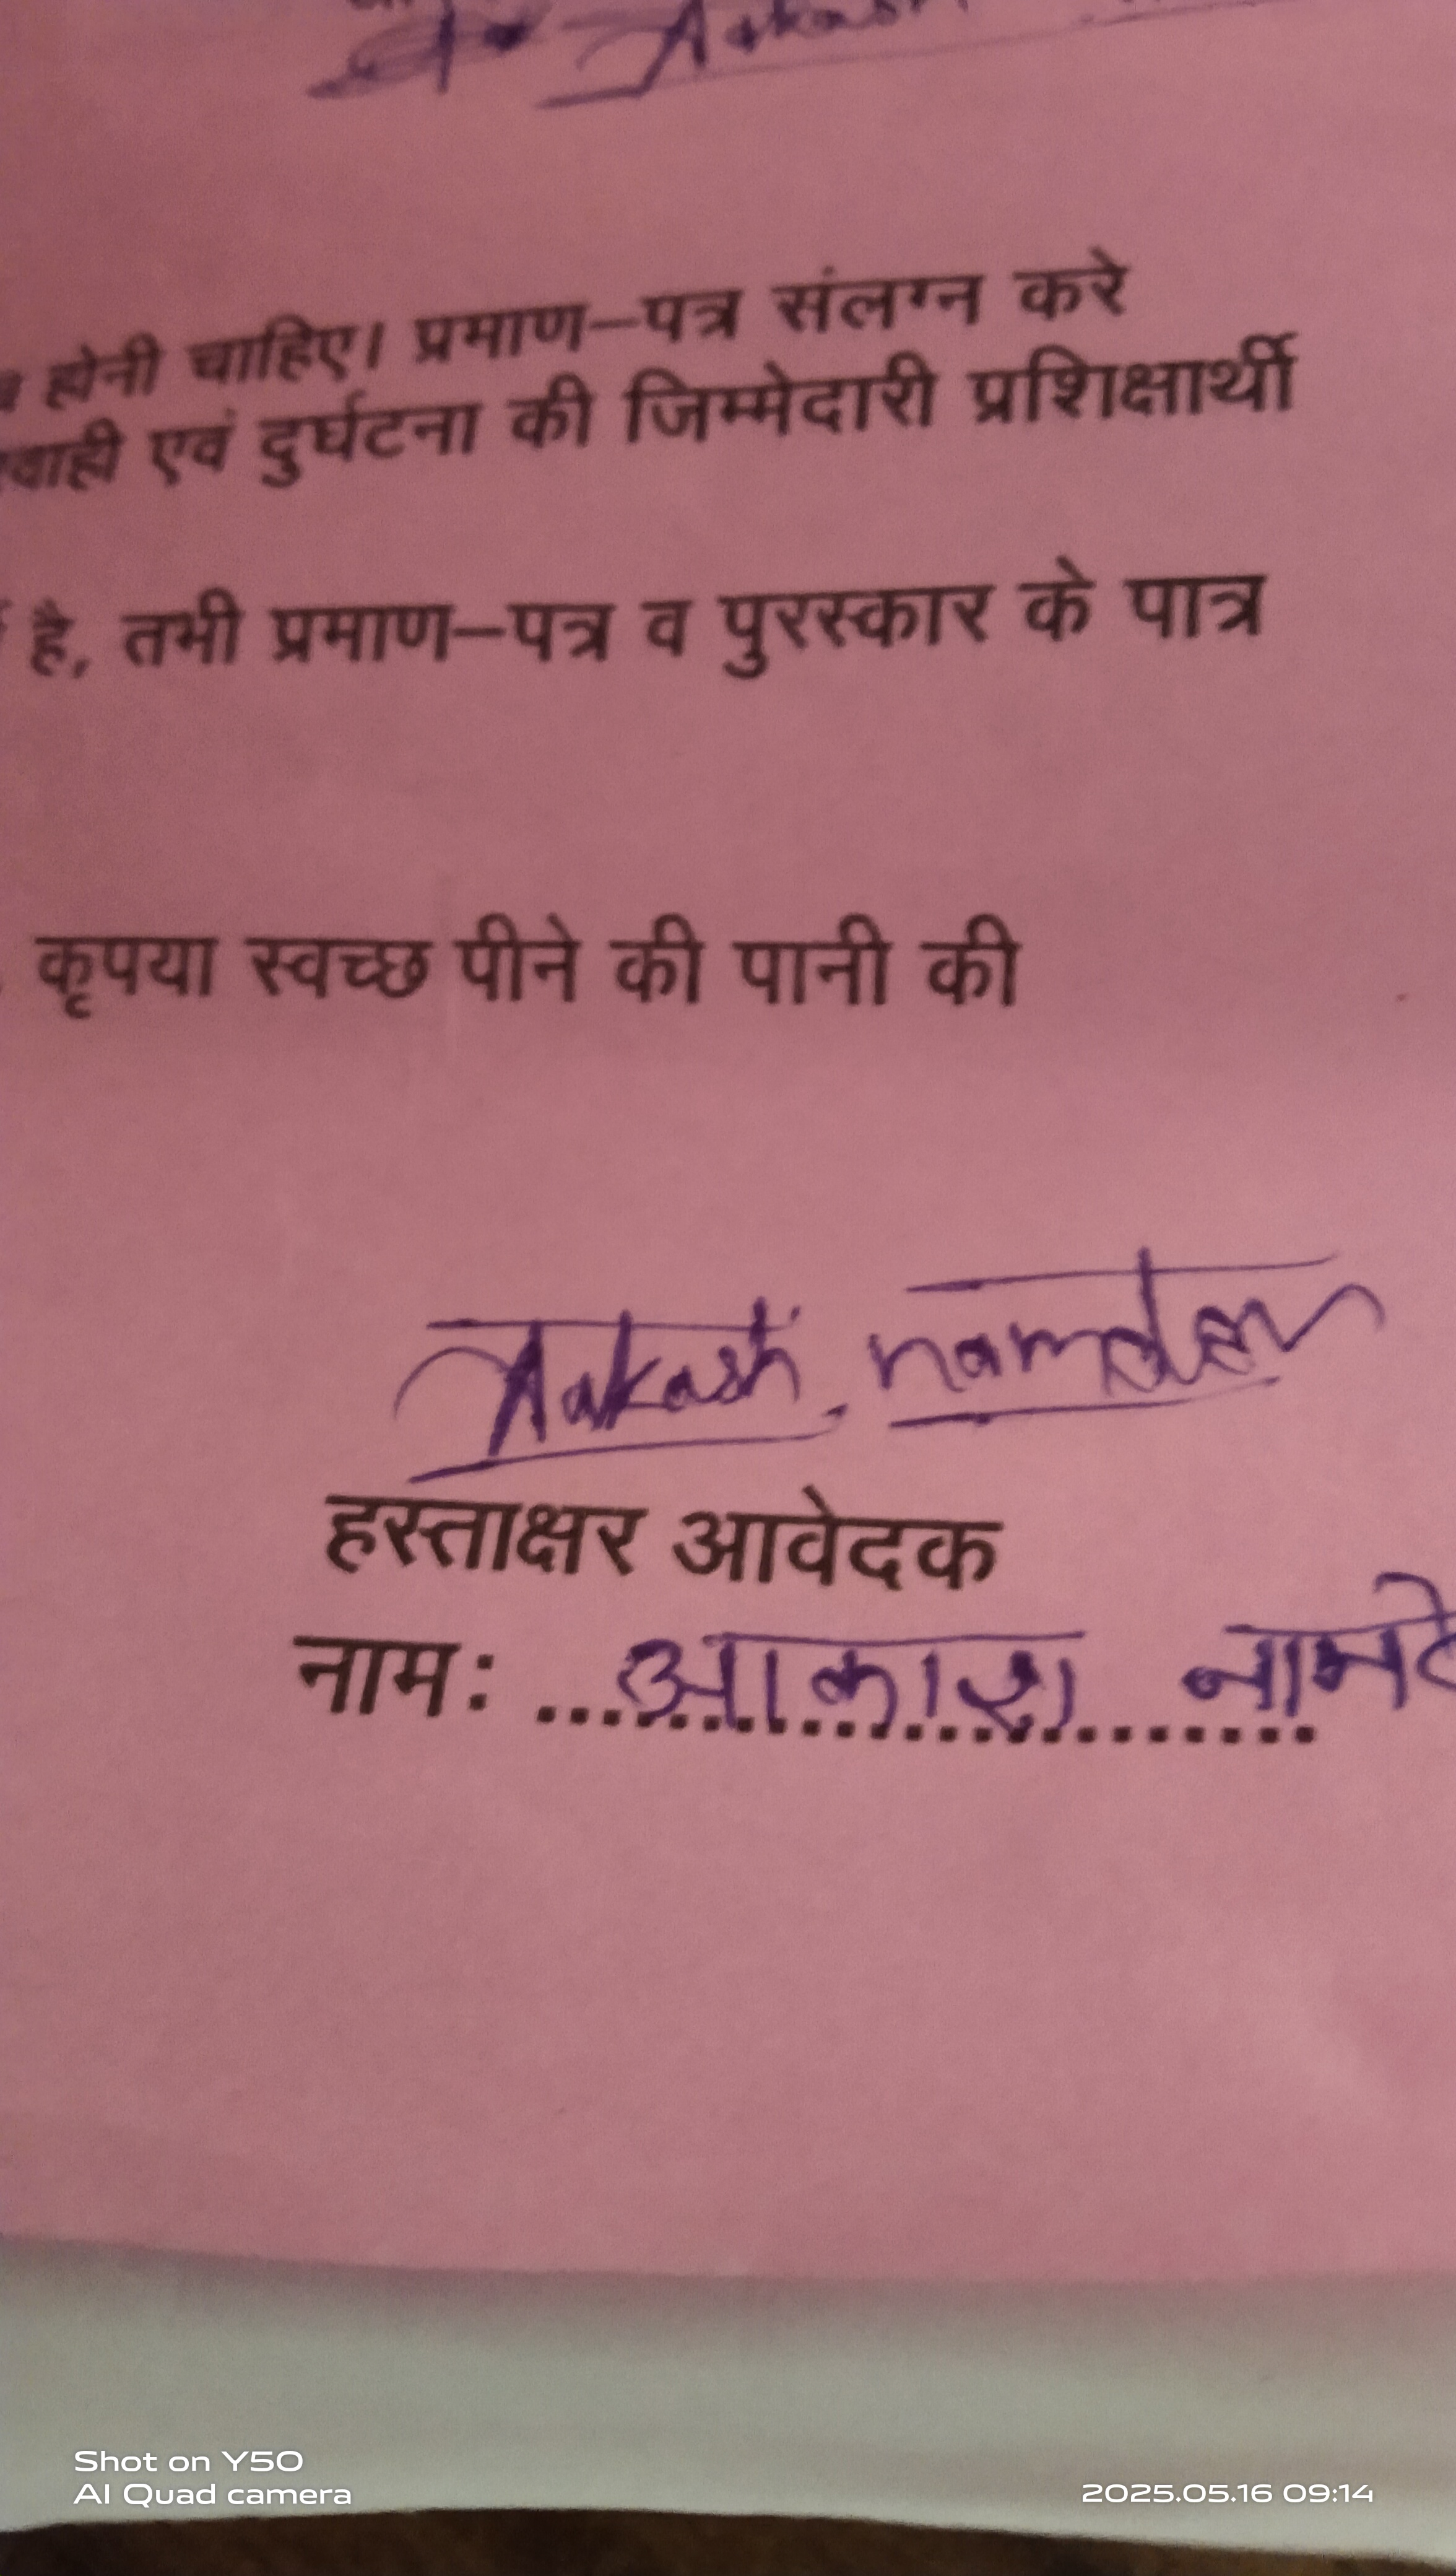 Aakash
होनी चाहिए। प्रमाण–पत्र संलग्न करे
एवं दुर्घटना की जिम्मेदारी प्रशिक्षार्थी
है, तभी प्रमाण–पत्र व पुरस्कार के पात्र
कृपया स्वच्छ पीने की पानी की
Aakash namdev
हस्ताक्षर आवेदक
नाम: आकाश
Shot on Y50
AI Quad camera
2025.05.16 09:14